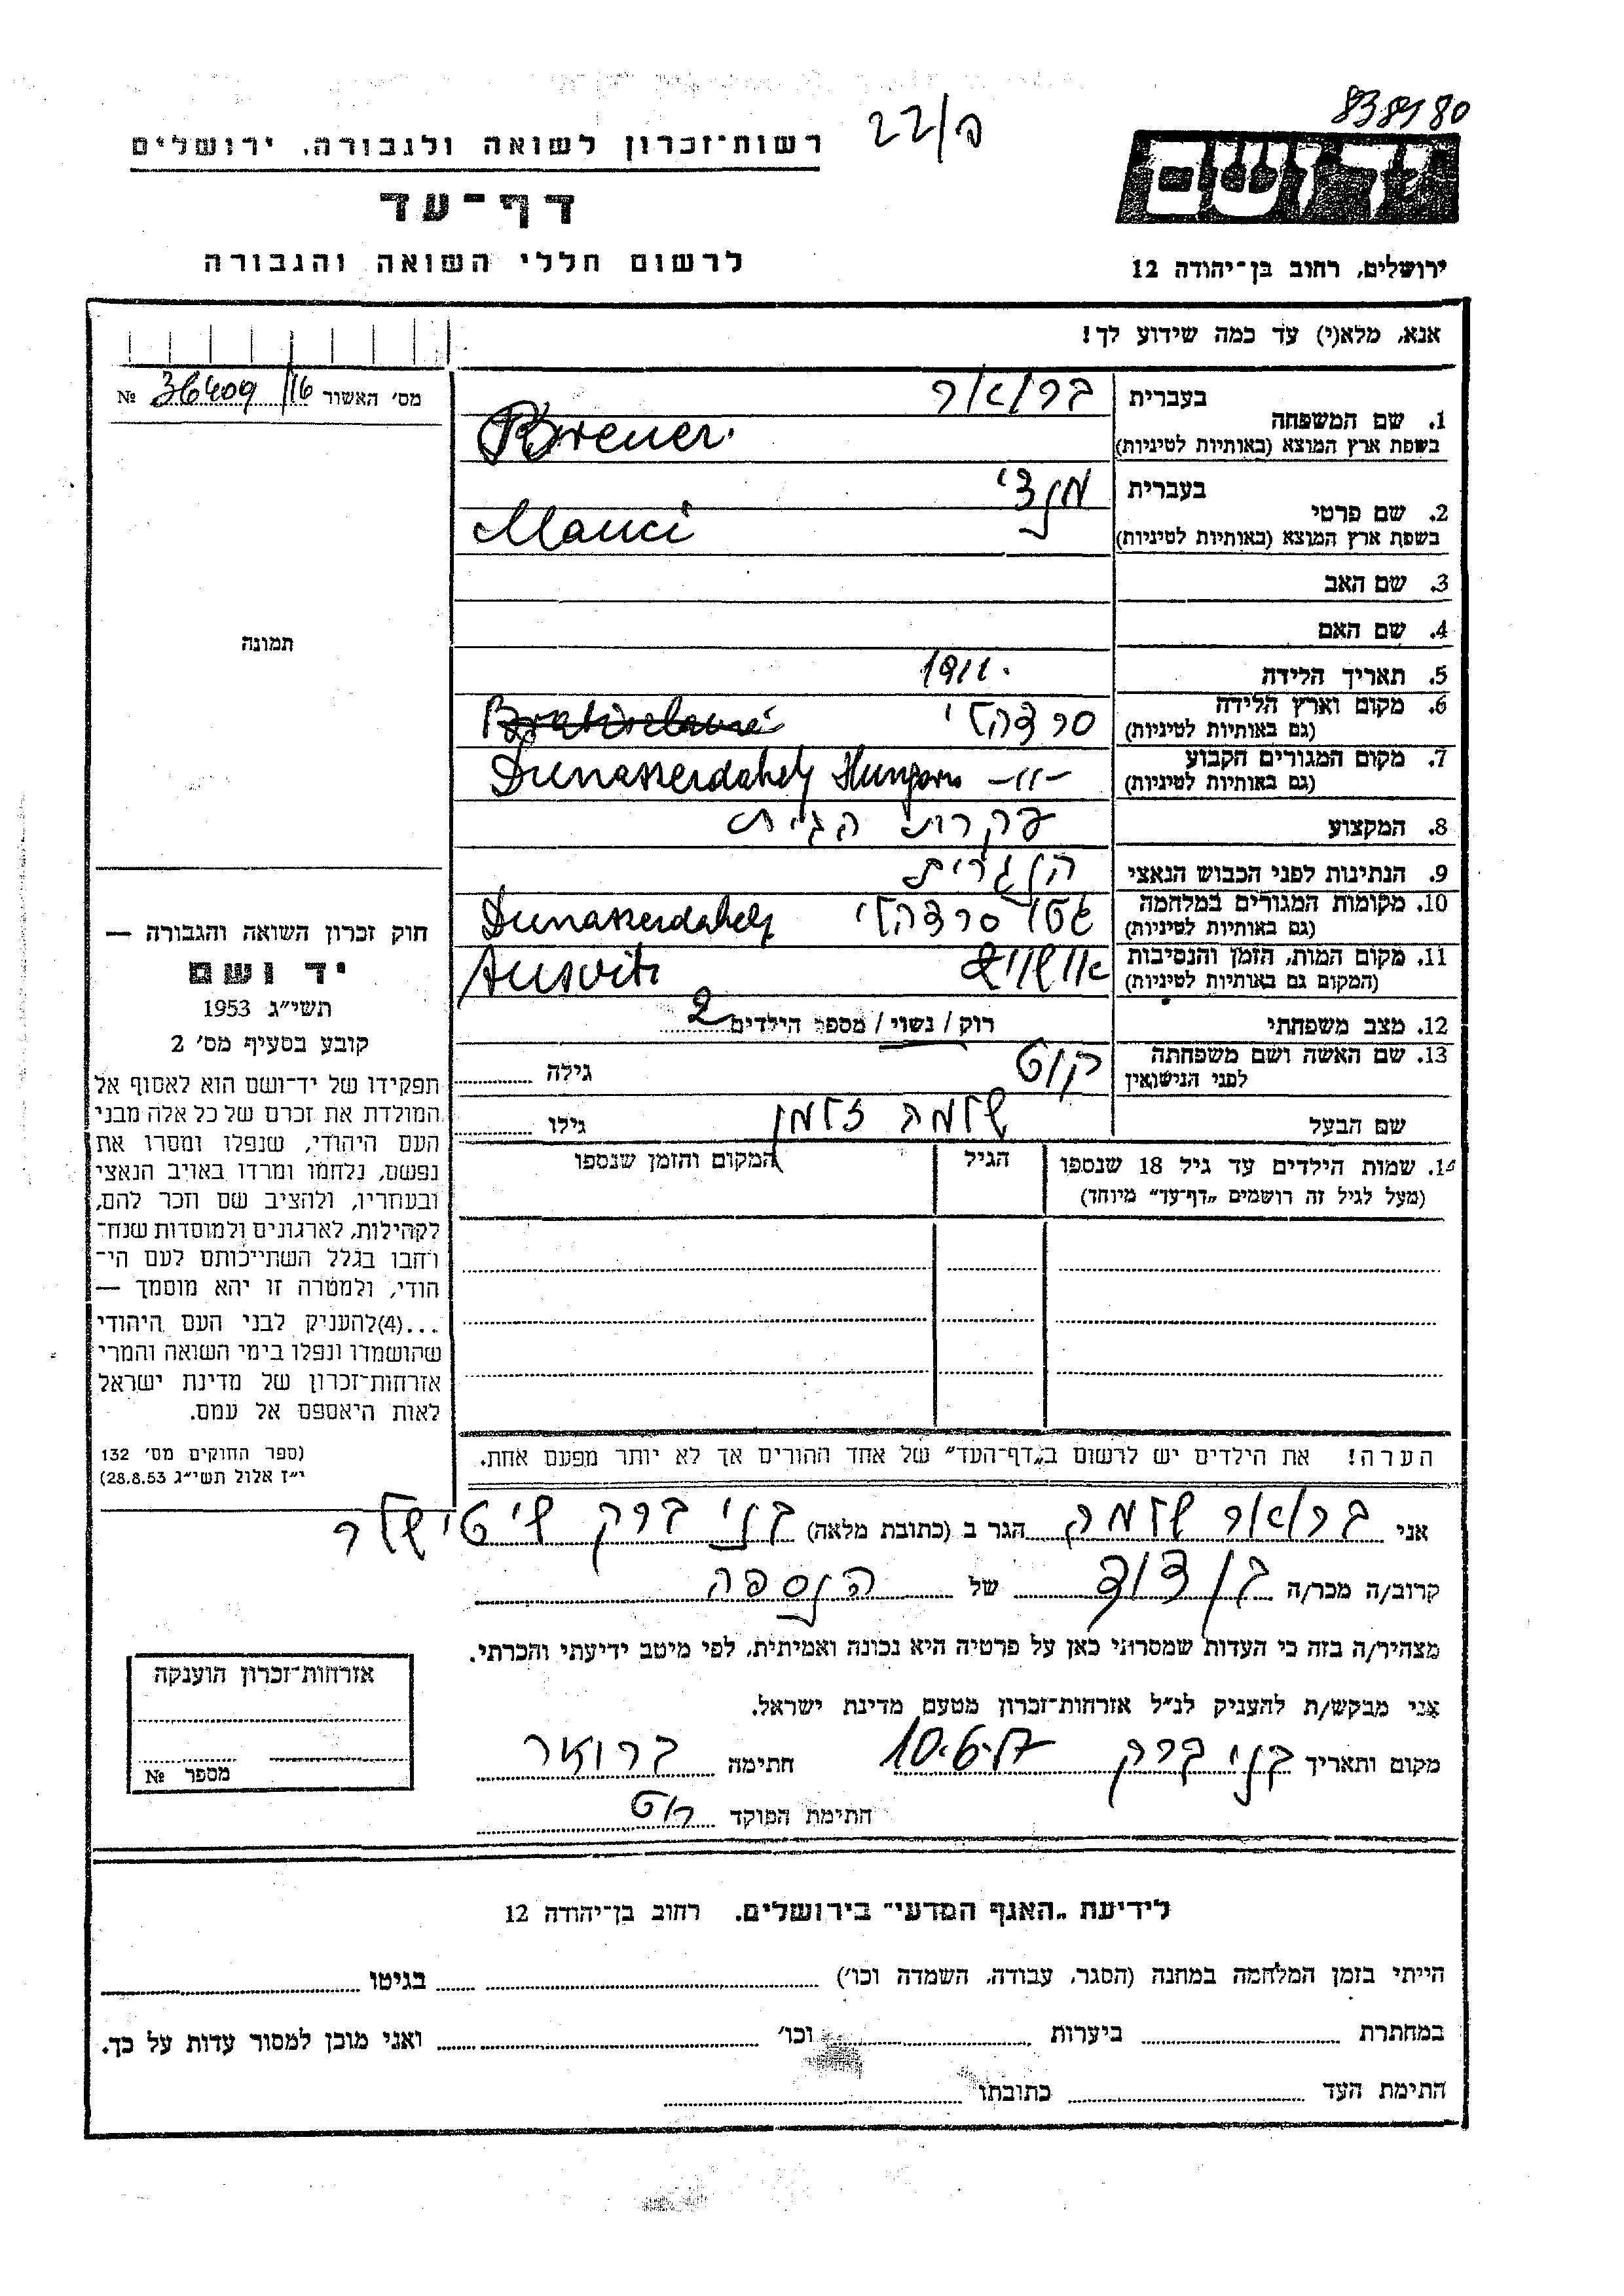 838980
ב/22
רשות־זכרון לשואה ולגבורה, ירושלים
דף־עד
לרשום חללי השואה והגבורה
יד ושם
ירושלים, רחוב בן־יהודה 12
אנא, מלא(י) עד כמה שידוע לך!
מס׳ האשור 36409/16 №
בעברית ברואר
1. שם המשפחה
בשפת ארץ המוצא (באותיות לטיניות) Breuer.
בעברית מנצי
2. שם פרטי
בשפת ארץ המוצא (באותיות לטיניות) Manci
3. שם האב
4. שם האם
תמונה
5. תאריך הלידה 1911.
6. מקום וארץ הלידה סרצהלי
(גם באותיות לטיניות)
7. מקום המגורים הקבוע -"-
(גם באותיות לטיניות) Dunaszerdahely
8. המקצוע עקרות הבית
9. הנתינות לפני הכבוש הנאצי הונגרית
10. מקומות המגורים במלחמה גטו סרצהלי Dunaszerdahely
(גם באותיות לטיניות)
11. מקום המות, הזמן והנסיבות אושוויץ Ausvitz
(המקום גם באותיות לטיניות)
12. מצב משפחתי רוק / נשוי / מספר הילדים 2
13. שם האשה ושם משפחתה קוט גילה
לפני הנישואין
שם הבעל שלמה זלמן גילו
14. שמות הילדים עד גיל 18 שנספו הגיל המקום והזמן שנספו
(מעל לגיל זה רושמים „דף־עד״ מיוחד)
הערה! את הילדים יש לרשום ב„דף־העד״ של אחד ההורים אך לא יותר מפעם אחת.
חוק זכרון השואה והגבורה —
יד ושם
תשי״ג 1953
קובע בסעיף מס׳ 2
תפקידו של יד־ושם הוא לאסוף אל
המולדת את זכרם של כל אלה מבני
העם היהודי, שנפלו ומסרו את
נפשם, נלחמו ומרדו באויב הנאצי
ובעוזריו, ולהציב שם וזכר להם,
לקהילות, לארגונים ולמוסדות שנח־
רבו בגלל השתייכותם לעם הי־
הודי, ולמטרה זו יהא מוסמך —
...(4) להעניק לבני העם היהודי
שהושמדו ונפלו בימי השואה והמרי
אזרחות־זכרון של מדינת ישראל
לאות היאספם אל עמם.
(ספר החוקים מס׳ 132
י״ז אלול תשי״ג 28.8.53)
אני ברואר שלמה הגר ב (כתובת מלאה) בני ברק
קרוב/ה מכר/ה בן דוד של הנספה
מצהיר/ה בזה כי העדות שמסרתי כאן על פרטיה היא נכונה ואמיתית, לפי מיטב ידיעתי והכרתי.
אני מבקש/ת להעניק לנ״ל אזרחות־זכרון מטעם מדינת ישראל.
מקום ותאריך בני ברק חתימה ברואר
חתימת הפוקד
אזרחות־זכרון הוענקה
מספר №
לידיעת „האגף המדעי״ בירושלים. רחוב בן־יהודה 12
הייתי בזמן המלחמה במחנה (הסגר, עבודה, השמדה וכו׳) בגיטו
במחתרת ביערות וכו׳ ואני מוכן למסור עדות על כך.
חתימת העד כתובתו